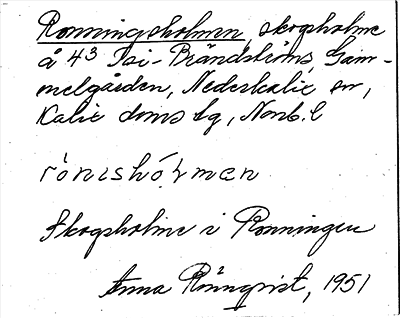 Ronningsholmen, skogsholme
å 4³ Psi-Brändströms, Gam-
melgården, Nederkalix sn,
Kalix doms lg, Nonb. l
rónıshól̥mæn
Skogsholme i Ronningen
Anna Rönnqvist, 1951